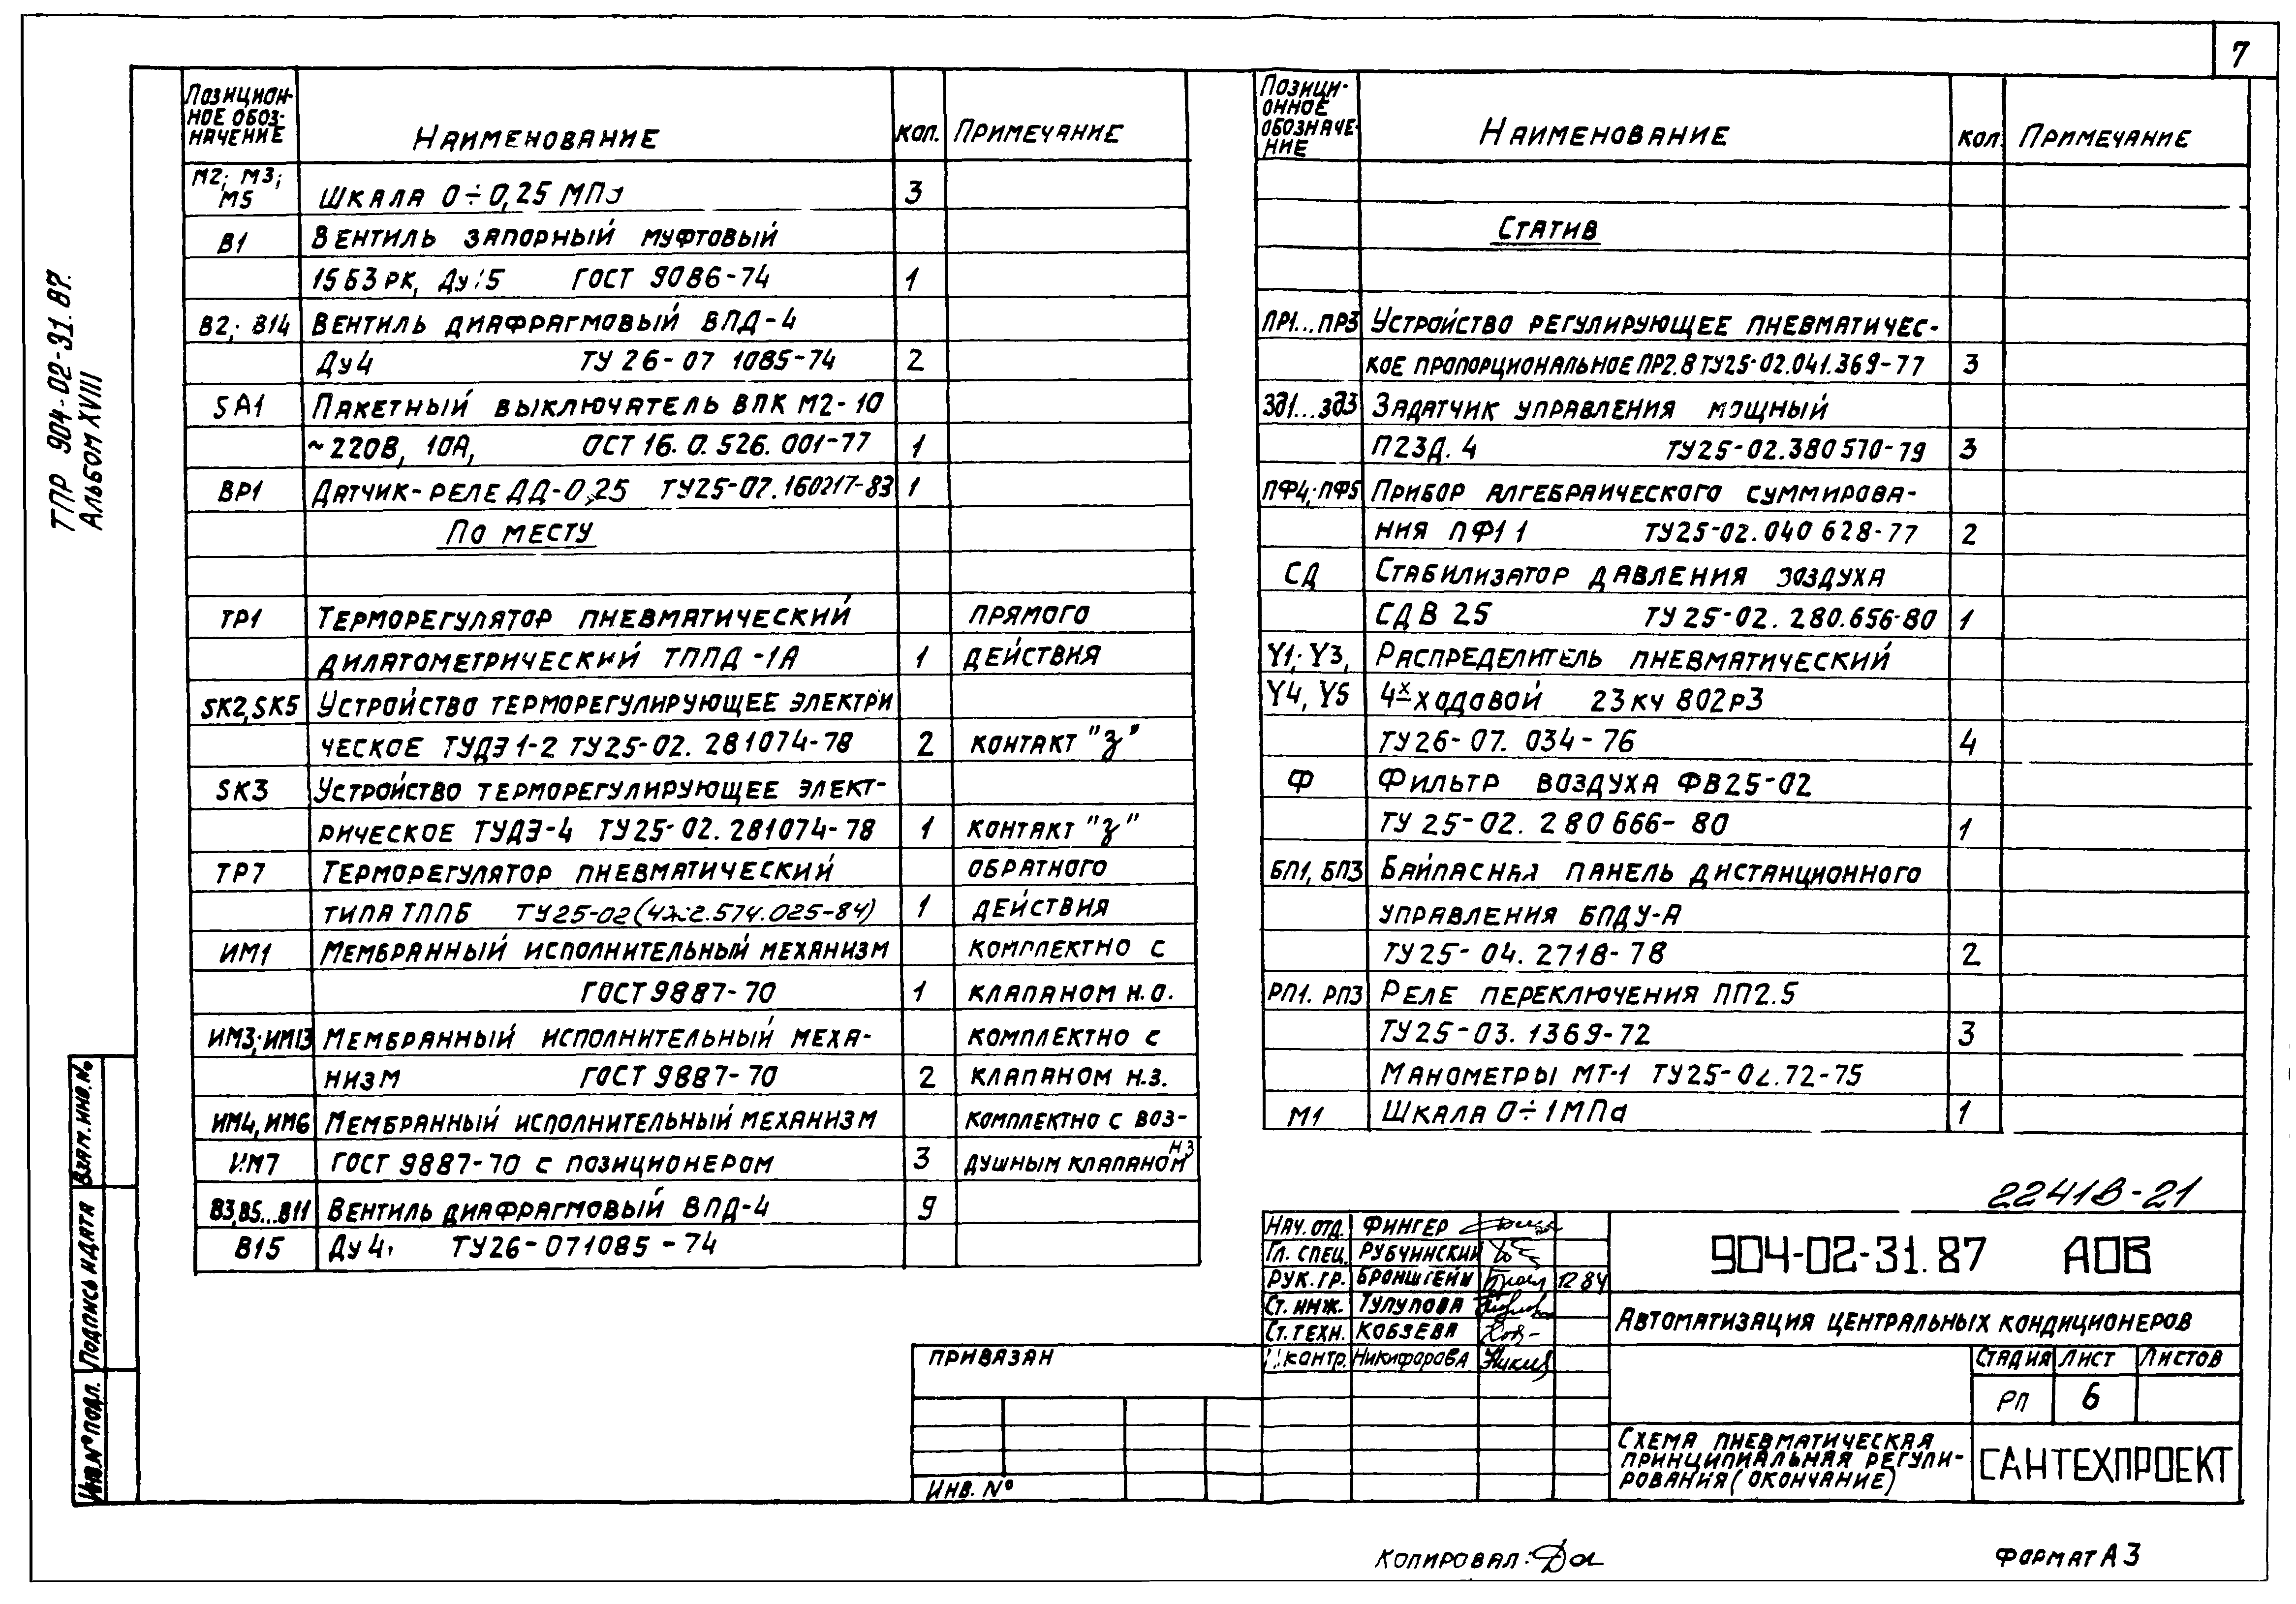 7
ТПР 904-02-31.87.
Альбом XVIII
Позицион-
ное обоз-
начение
Наименование
Кол.
Примечание
М2; М3;
М5
Шкала 0÷0,25 МПа
3
В1
Вентиль запорный муфтовый
15Б3рк, Ду15 ГОСТ 9086-74
1
В2; В14
Вентиль диафрагмовый ВПД-4
Ду4 ТУ 26-07 1085-74
2
SA1
Пакетный выключатель ВПК М2-10
~220В, 10А, ОСТ 16.0.526.001-77
1
ВР1
Датчик-реле ДД-0,25 ТУ25-02.160217-83
1
По месту
ТР1
Терморегулятор пневматический
прямого
дилатометрический ТППД-1А
1
действия
SK2, SK5
Устройство терморегулирующее электри
ческое ТУДЭ1-2 ТУ25-02.281074-78
2
контакт "З"
SK3
Устройство терморегулирующее элект-
рическое ТУДЭ-4 ТУ25-02.281074-78
1
контакт "З"
ТР7
Терморегулятор пневматический
обратного
типа ТППБ ТУ25-02(4Ж2.574.025-84)
1
действия
ИМ1
Мембранный исполнительный механизм
комплектно с
ГОСТ 9887-70
1
клапаном н.о.
ИМ3; ИМ13
Мембранный исполнительный меха-
комплектно с
низм ГОСТ 9887-70
2
клапаном н.з.
ИМ4, ИМ6
Мембранный исполнительный механизм
комплектно с воз-
ИМ7
ГОСТ 9887-70 с позиционером
3
душным клапаном нз
В3, В5...В11
Вентиль диафрагмовый ВПД-4
9
В15
Ду 4, ТУ26-071085-74
Позици-
онное
обозначе-
ние
Наименование
Кол.
Примечание
Статив
ПР1...ПР3
Устройство регулирующее пневматичес-
кое пропорциональное ПР2.8 ТУ25-02.041.369-77
3
Зд1...Зд3
Задатчик управления мощный
П23Д.4 ТУ25-02.380570-79
3
ПФ4; ПФ5
Прибор алгебраического суммирова-
ния ПФ1 1 ТУ25-02.040 628-77
2
СД
Стабилизатор давления воздуха
СДВ 25 ТУ25-02.280.656-80
1
Y1; Y3,
Распределитель пневматический
Y4, Y5
4х ходовой 23кч 802р3
ТУ26-07.034-76
4
Ф
Фильтр воздуха ФВ25-02
ТУ 25-02.280666-80
1
БП1, БП3
Байпасная панель дистанционного
управления БПДУ-А
ТУ25-04.2718-78
2
РП1. РП3
Реле переключения ПП2.5
ТУ25-03.1369-72
3
Манометры МТ-1 ТУ25-02.72-75
М1
Шкала 0÷1МПа
1
22418-21
Нач. отд. Фингер
Гл. спец. Рубчинский
Рук. гр. Бронштейн 12 84
Ст. инж. Тулупова
Ст. техн. Кобзева
Н контр. Никифорова
904-02-31.87 АОВ
Автоматизация центральных кондиционеров
Стадия Лист Листов
РП 6
Схема пневматическая
принципиальная регули-
рования (окончание)
САНТЕХПРОЕКТ
Привязан
Инв. №
Взам. инв. №
Подпись и дата
Инв. № подл.
Копировал:
Формат А3